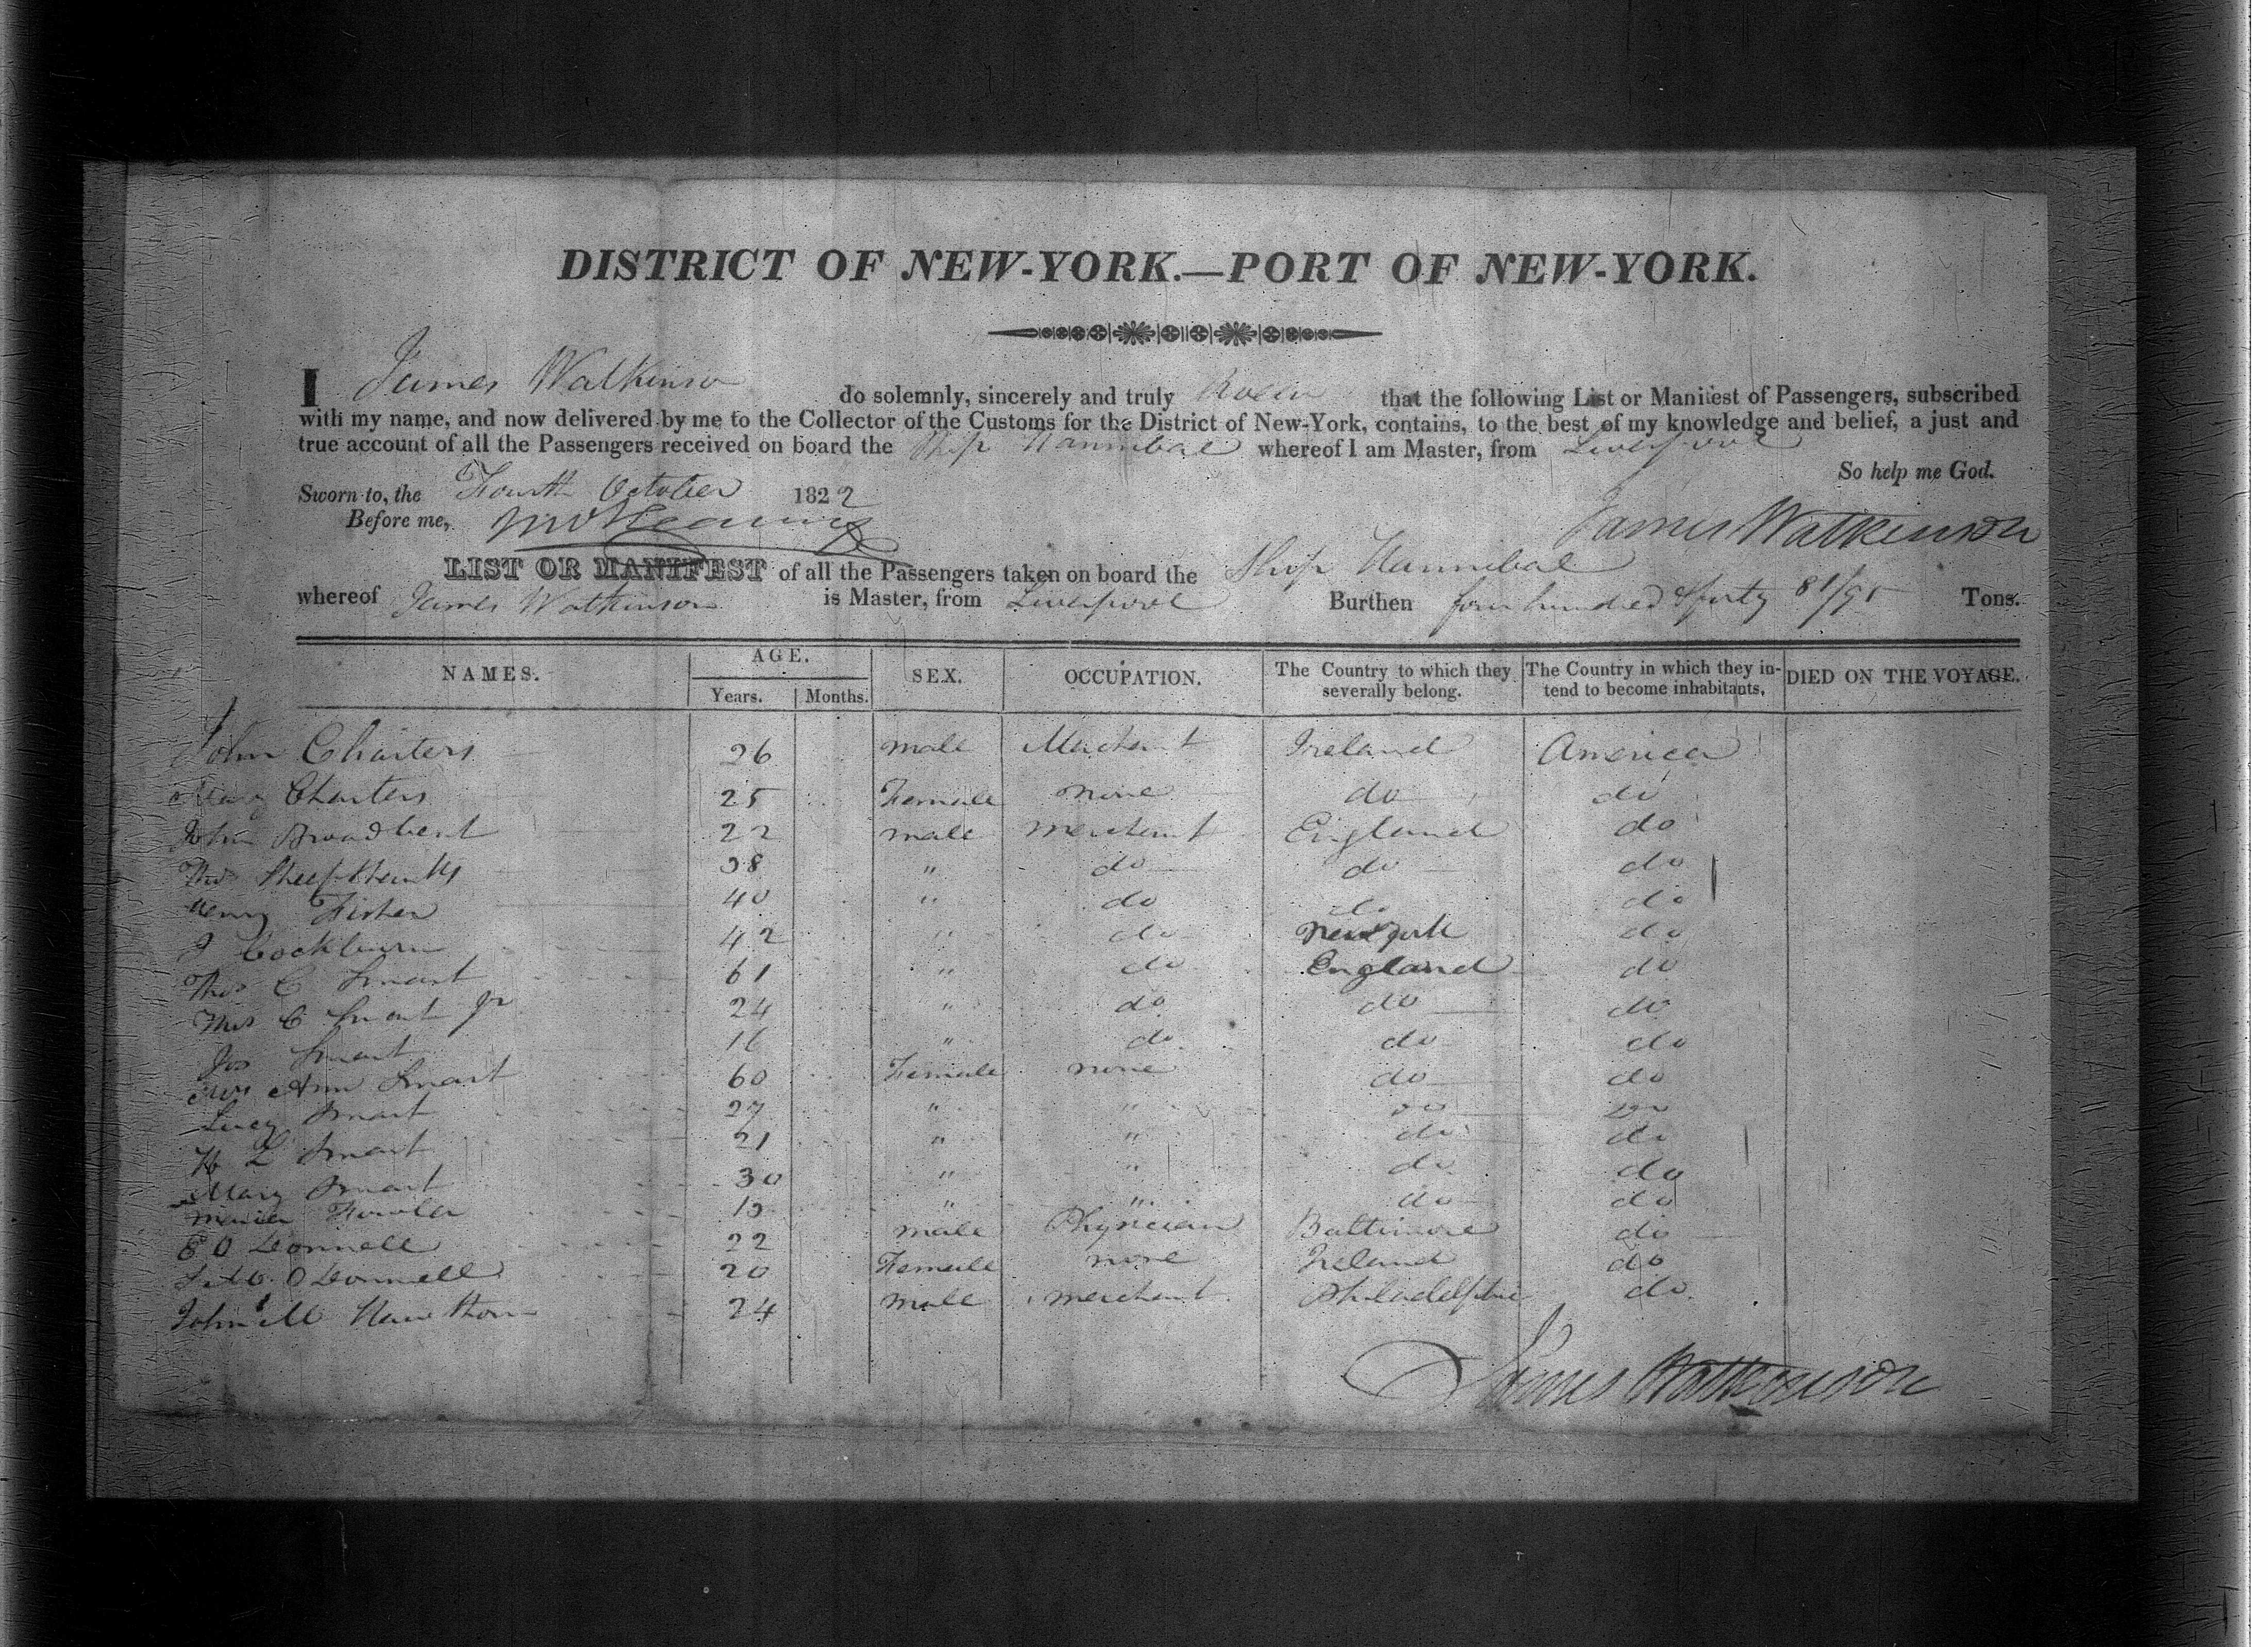 DISTRICT OF NEW-YORK.—PORT OF NEW-YORK.
I James Watkinson do solemnly, sincerely and truly that the following List or Manifest of Passengers, subscribed
with my name, and now delivered by me to the Collector of the Customs for the District of New-York, contains, to the best of my knowledge and belief, a just and
true account of all the Passengers received on board the Ship Hannibal whereof I am Master, from Liverpool
So help me God.
Sworn to, the Fourth October 1822
Before me,
James Watkinson
LIST OR MANIFEST of all the Passengers taken on board the Ship Hannibal
whereof James Watkinson is Master, from Liverpool Burthen four hundred & forty 81/95 Tons.
NAMES. AGE. Years. Months. SEX. OCCUPATION. The Country to which they severally belong. The Country in which they intend to become inhabitants, DIED ON THE VOYAGE.
John Charters 26 male Merchant Ireland America
Mary Charters 25 Female none do do
John Broadbent 22 male merchant England do
Thos 38 " do do do
Henry Fisher 40 " do do do
J Cockburn 42 " do New York do
Thos C Smart 61 " do England do
Thos C Smart Jr 24 " do do do
Jos Smart 16 " do do do
Mrs Ann Smart 60 Female none do do
Lucy Smart 27 " " do do
H L Smart 21 " " do do
Mary Smart 30 " " do do
Maria Fowler " " do do
E O Donnell 22 male Physician Baltimore do
O Donnell 20 Female none Ireland do
John M Hawthorn 24 male merchant Philadelphia do
James Watkinson